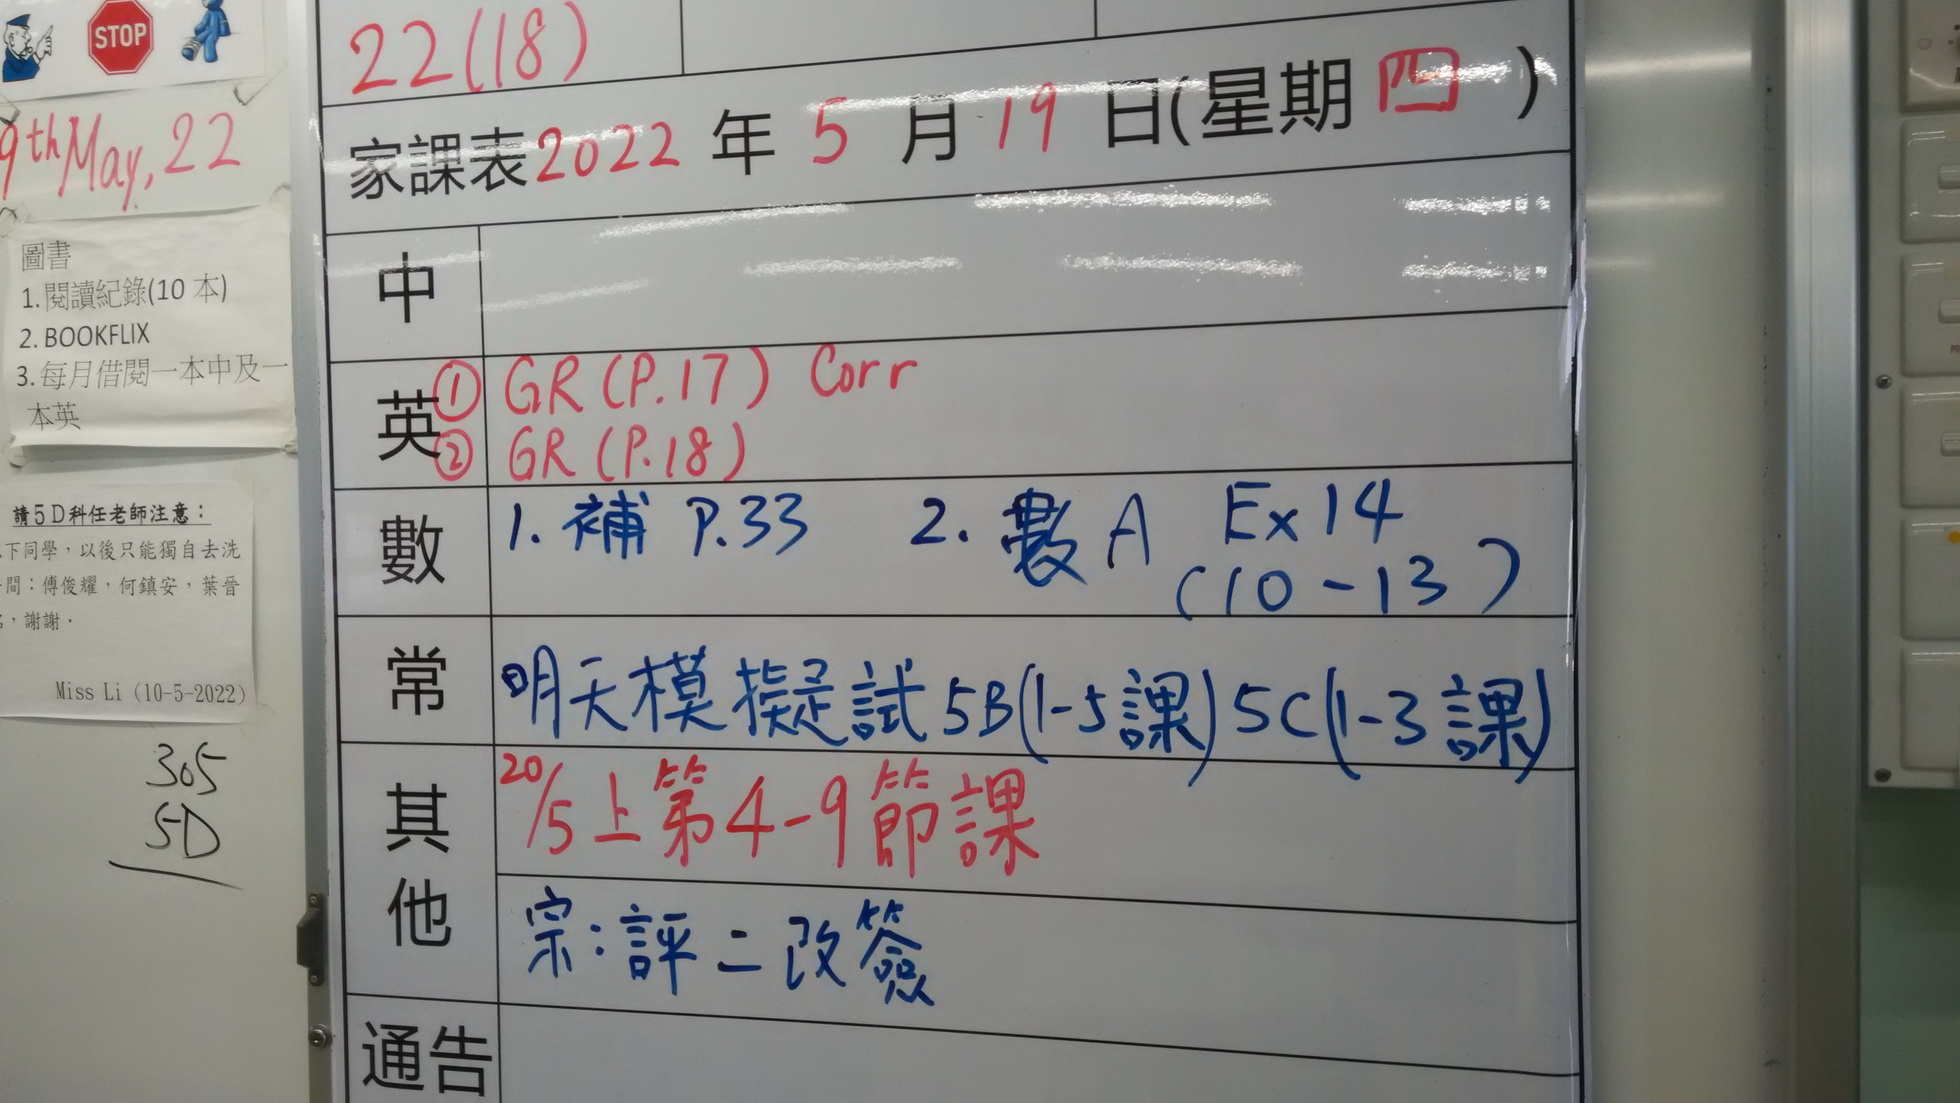 STOP
9th May, 22
圖書
1. 閱讀紀錄(10 本)
2. BOOKFLIX
3. 每月借閱一本中及一
本英
請5D科任老師注意：
下同學，以後只能獨自去洗
間：傅俊耀，何鎮安，葉晉
，謝謝．
Miss Li (10-5-2022)
305
5D
22(18)
家課表2022 年 5 月 19 日(星期 四 )
中
英 ① GR (P.17) Corr
② GR (P.18)
數 1. 補 P.33 2. 數 A Ex 14
(10 - 13)
常 明天模擬試 5B(1-5課) 5C(1-3課)
其他 20/5 上第 4-9 節課
宗：評二改簽
通告